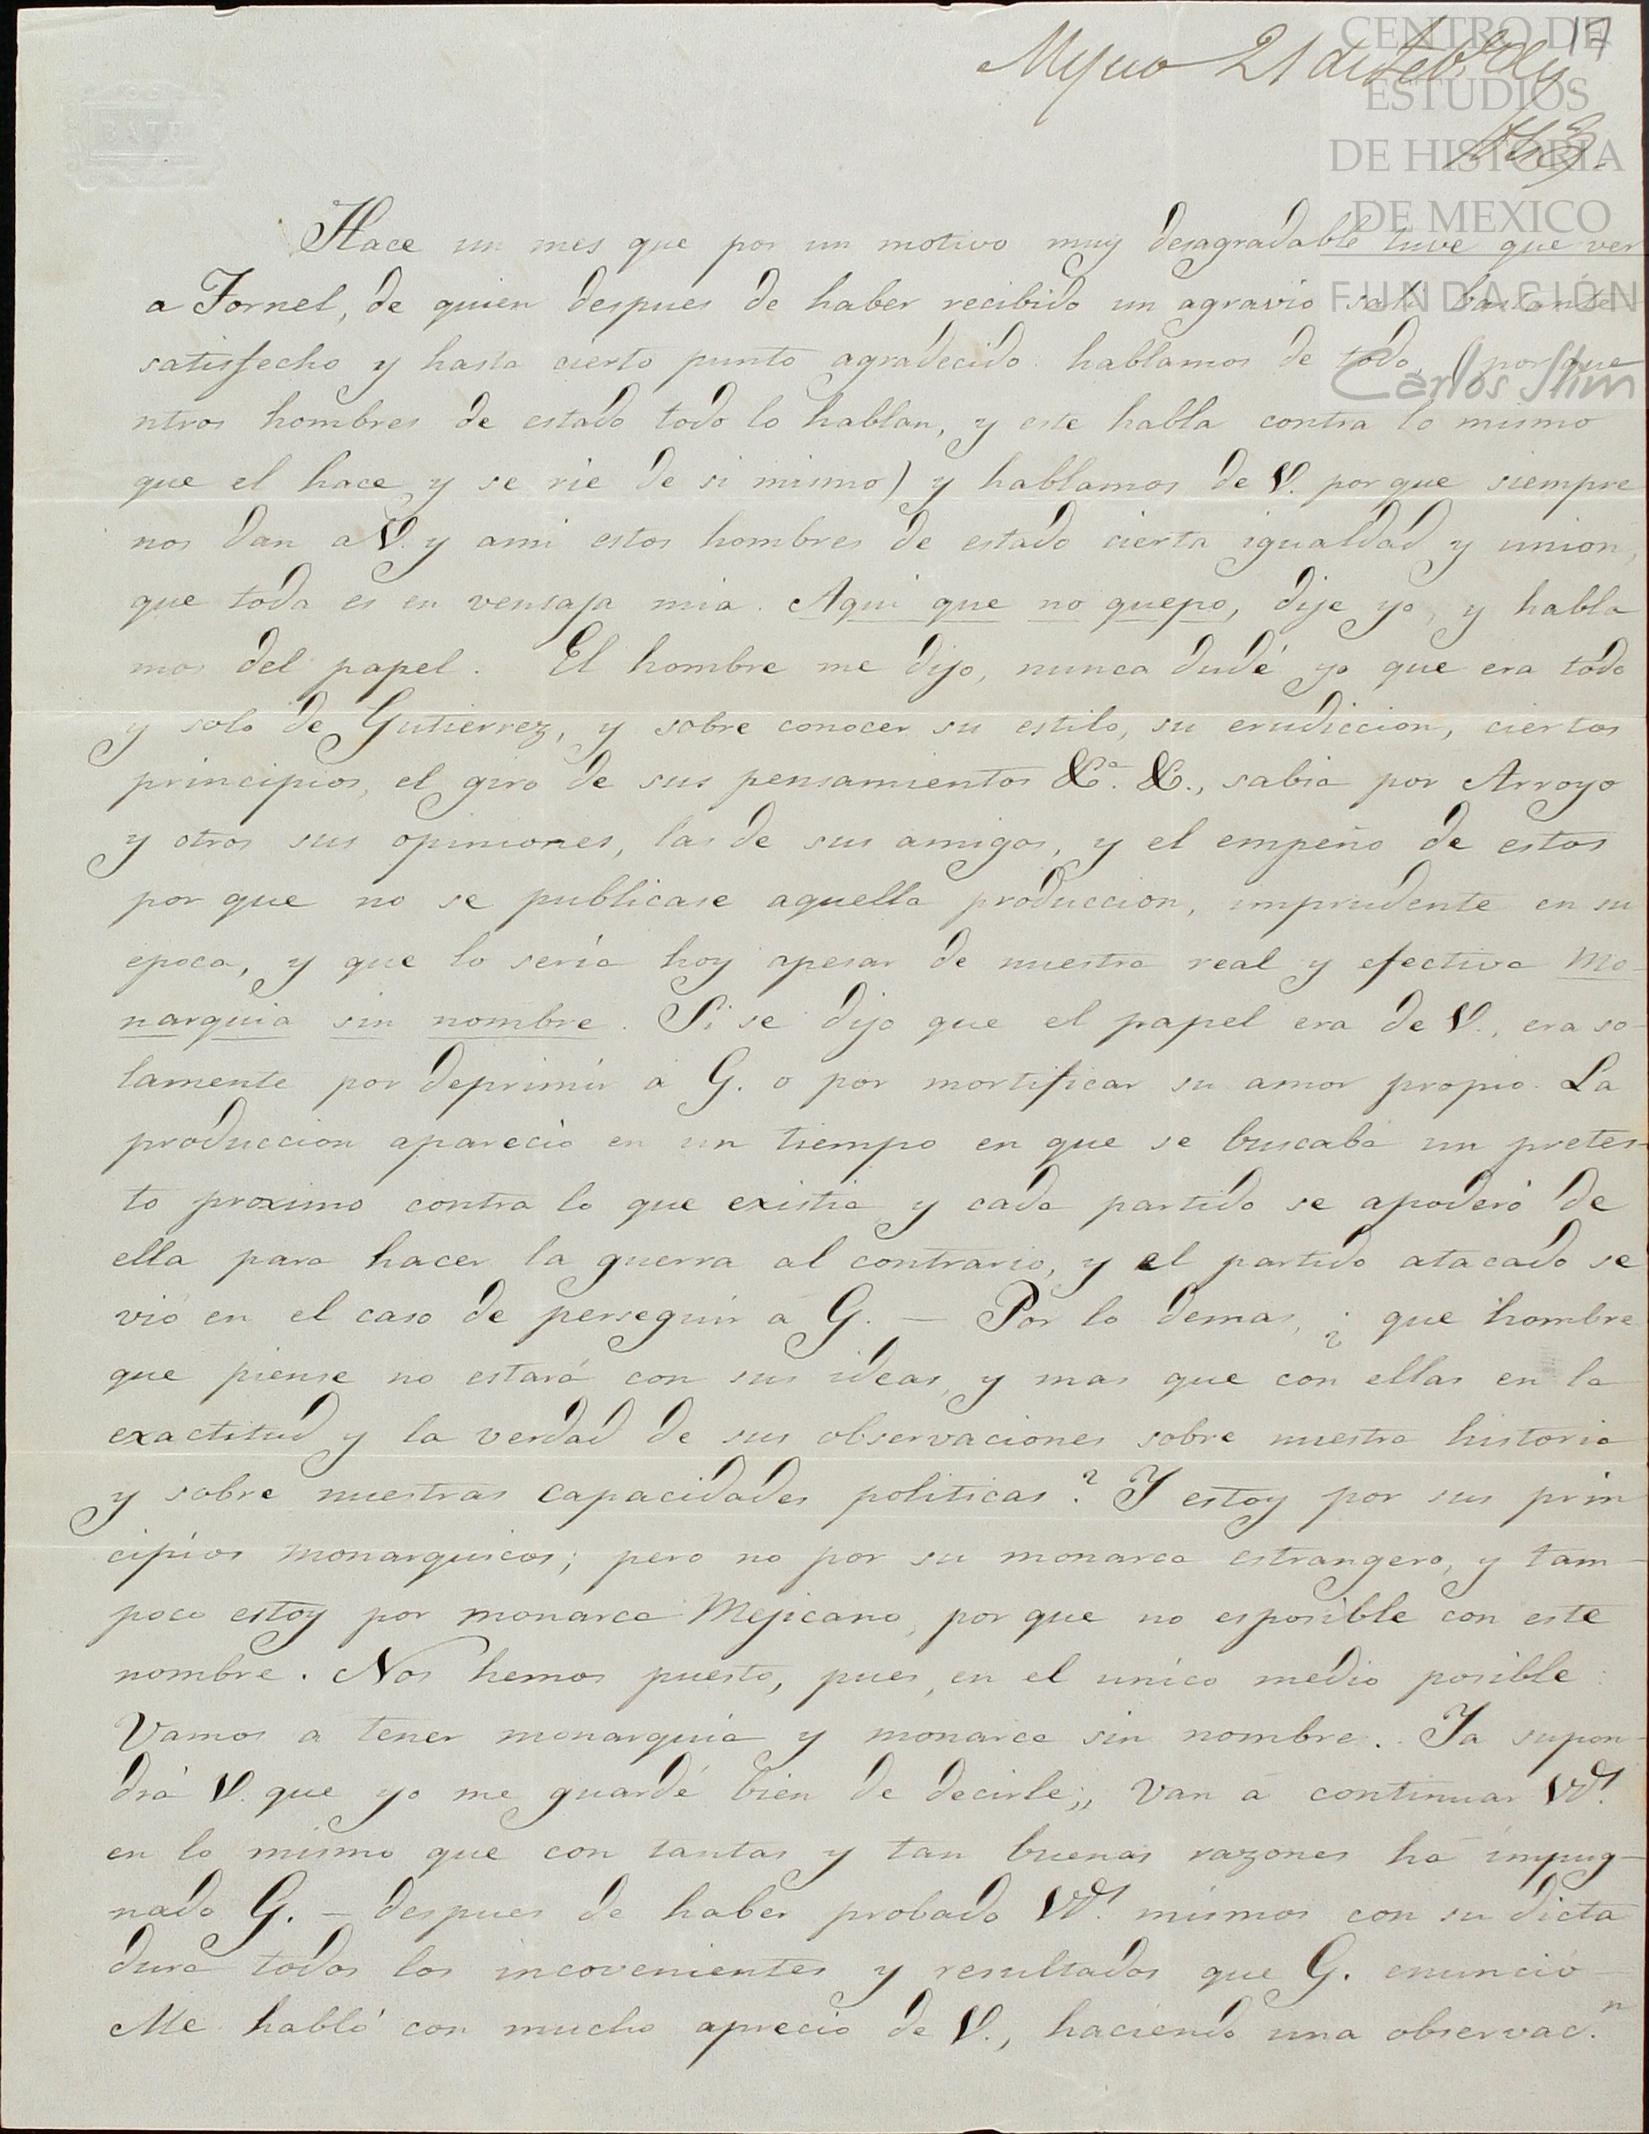 17
Mejico 21 de Feb.o de
843.
CENTRO DE
ESTUDIOS
DE HISTORIA
DE MEXICO
FUNDACIÓN
Carlos Slim
Hace un mes que por un motivo muy desagradable tuve que ver
a Tornel, de quien despues de haber recibido un agravio sali bastante
satisfecho y hasta cierto punto agradecido. hablamos de todo, (por que
ntros hombres de estado todo lo hablan, y este habla contra lo mismo
que el hace y se rie de si mismo) y hablamos de V. por que siempre
nos dan a V. y ami estos hombres de estado cierta igualdad y union,
que toda es en ventaja mia. Aqui que no quepo, dije yo, y habla
mos del papel. El hombre me dijo, nunca dudé yo que era todo
y solo de Gutierrez, y sobre conocer su estilo, su erudiccion, ciertos
principios, el giro de sus pensamientos &.a &., sabia por Arroyo
y otros sus opiniones, las de sus amigos, y el empeño de estos
por que no se publicase aquella produccion, imprudente en su
epoca, y que lo sería hoy apesar de nuestra real y efectiva Mo-
narquia sin nombre. Si se dijo que el papel era de V., era so-
lamente por deprimir a G. o por mortificar su amor propio. La
produccion apareció en un tiempo en que se buscaba un pretes-
to proximo contra lo que existia y cada partido se apoderó de
ella para hacer la guerra al contrario, y el partido atacado se
vió en el caso de perseguir a G. — Por lo demas, ¿ que hombre
que piense no estará con sus ideas, y mas que con ellas en la
exactitud y la verdad de sus observaciones sobre nuestra historia
y sobre nuestras capacidades politicas? Y estoy por sus prin
cipios monarquicos; pero no por su monarca estrangero, y tam-
poco estoy por monarca Mejicano, por que no esposible con este
nombre. Nos hemos puesto, pues, en el unico medio posible:
Vamos a tener monarquia y monarca sin nombre. Ya supon-
drá V. que yo me guardé bien de decirle;, Van a continuar Vds.
en lo mismo que con tantas y tan buenas razones ha impug-
nado G. — despues de haber probado Vds. mismos con su dicta
dura todos los incovenientes y resultados que G. enunció —
Me habló con mucho aprecio de V., haciendo una observac.n